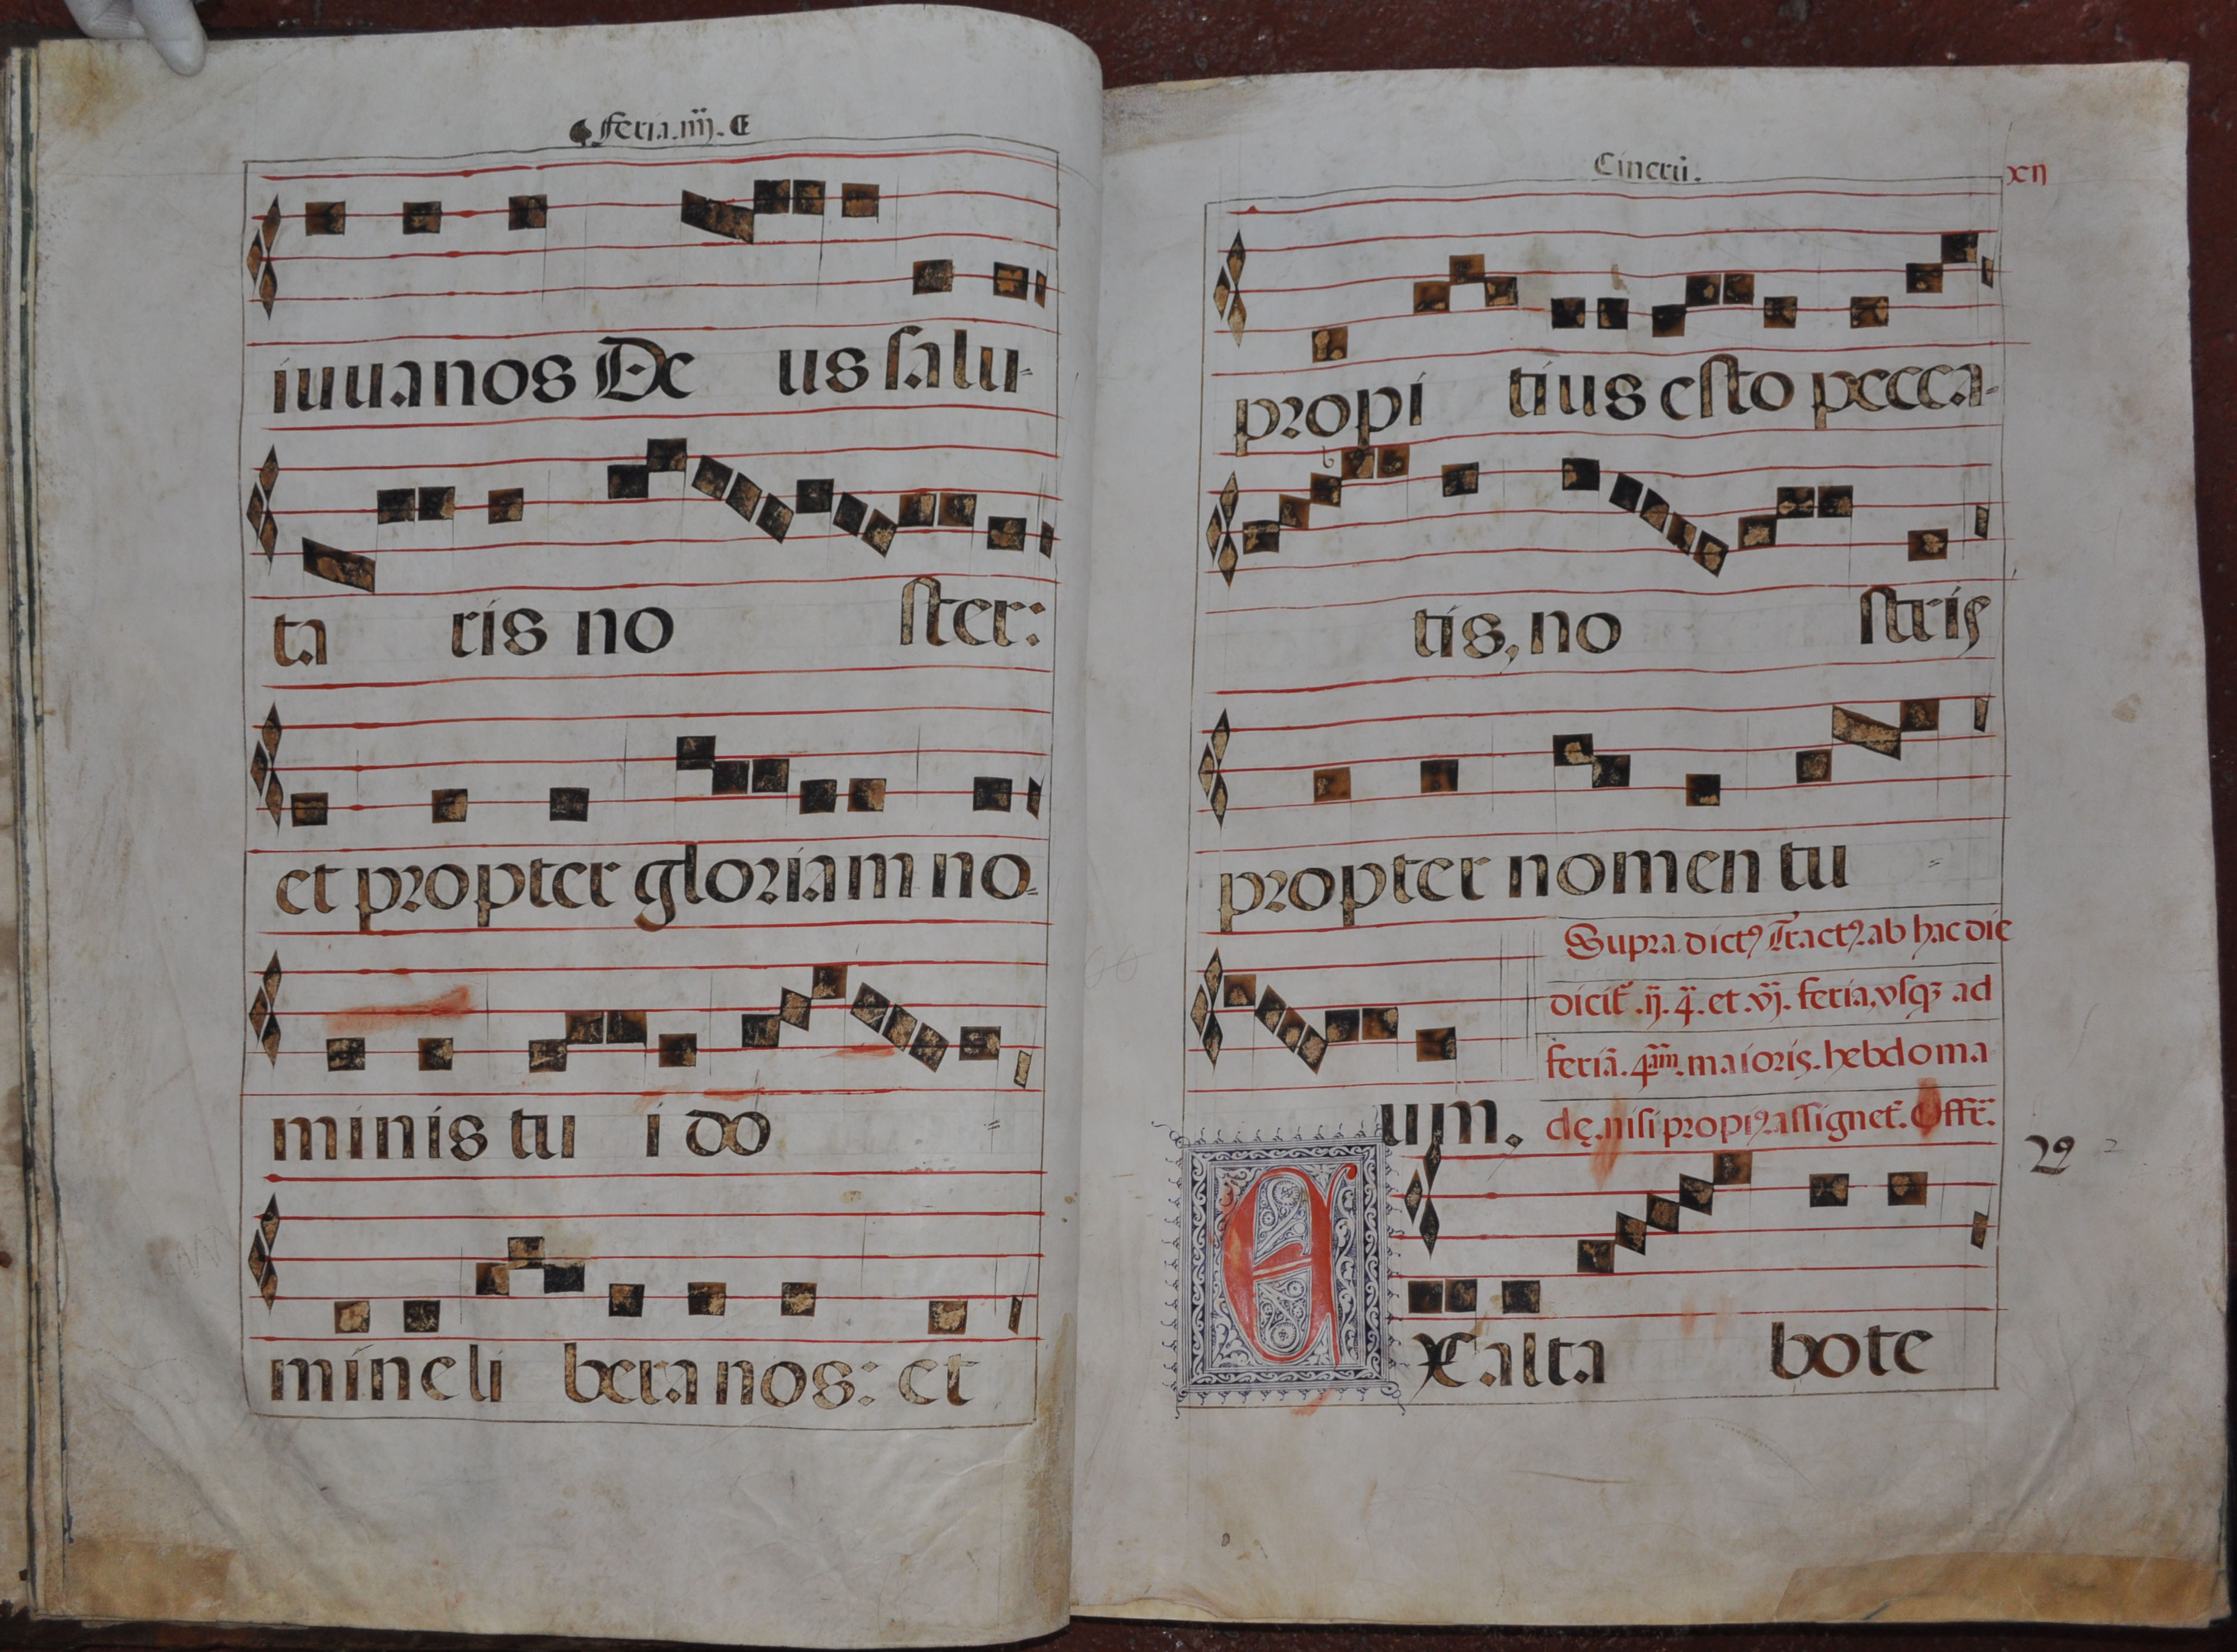 feria.iiij. E
iuuanos De us salu-
ta ris no ster:
et propter gloriam no-
minis tu i do =
mine li bera nos: et
Cinerū.
xij
propi tius esto pecca-
tis, no stris
propter nomen tu =
Supra dictꝰ Tractꝰ ab hac die
dicit̃ .ij. 4. et .vj. feria, vsqꝫ ad
feriā. 4am. maioris. hebdoma
um. dę. nisi propiꝰ assignet̃. Offr̃.
29
EXalta bo te